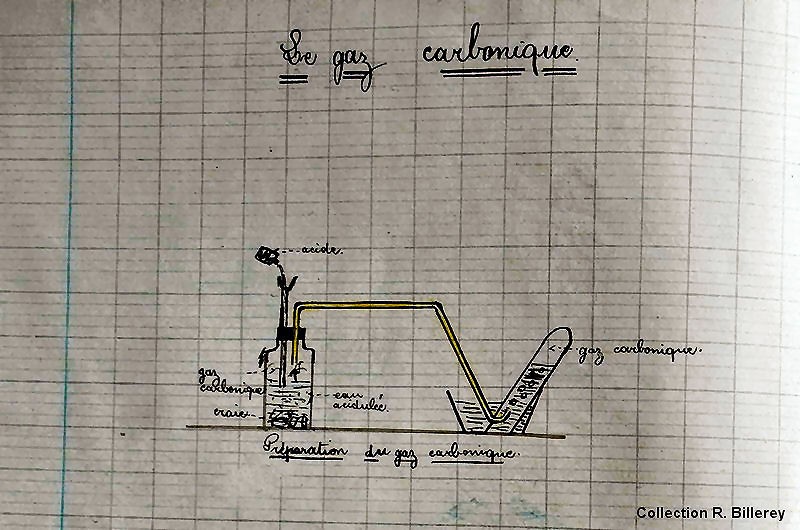 Le gaz carbonique.
acide.
gaz carbonique.
gaz
carbonique
eau
acidulée.
craie.
Préparation du gaz carbonique.
Collection R. Billerey